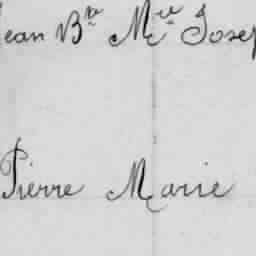 Jean Bte Mie Josep
Pierre Marie